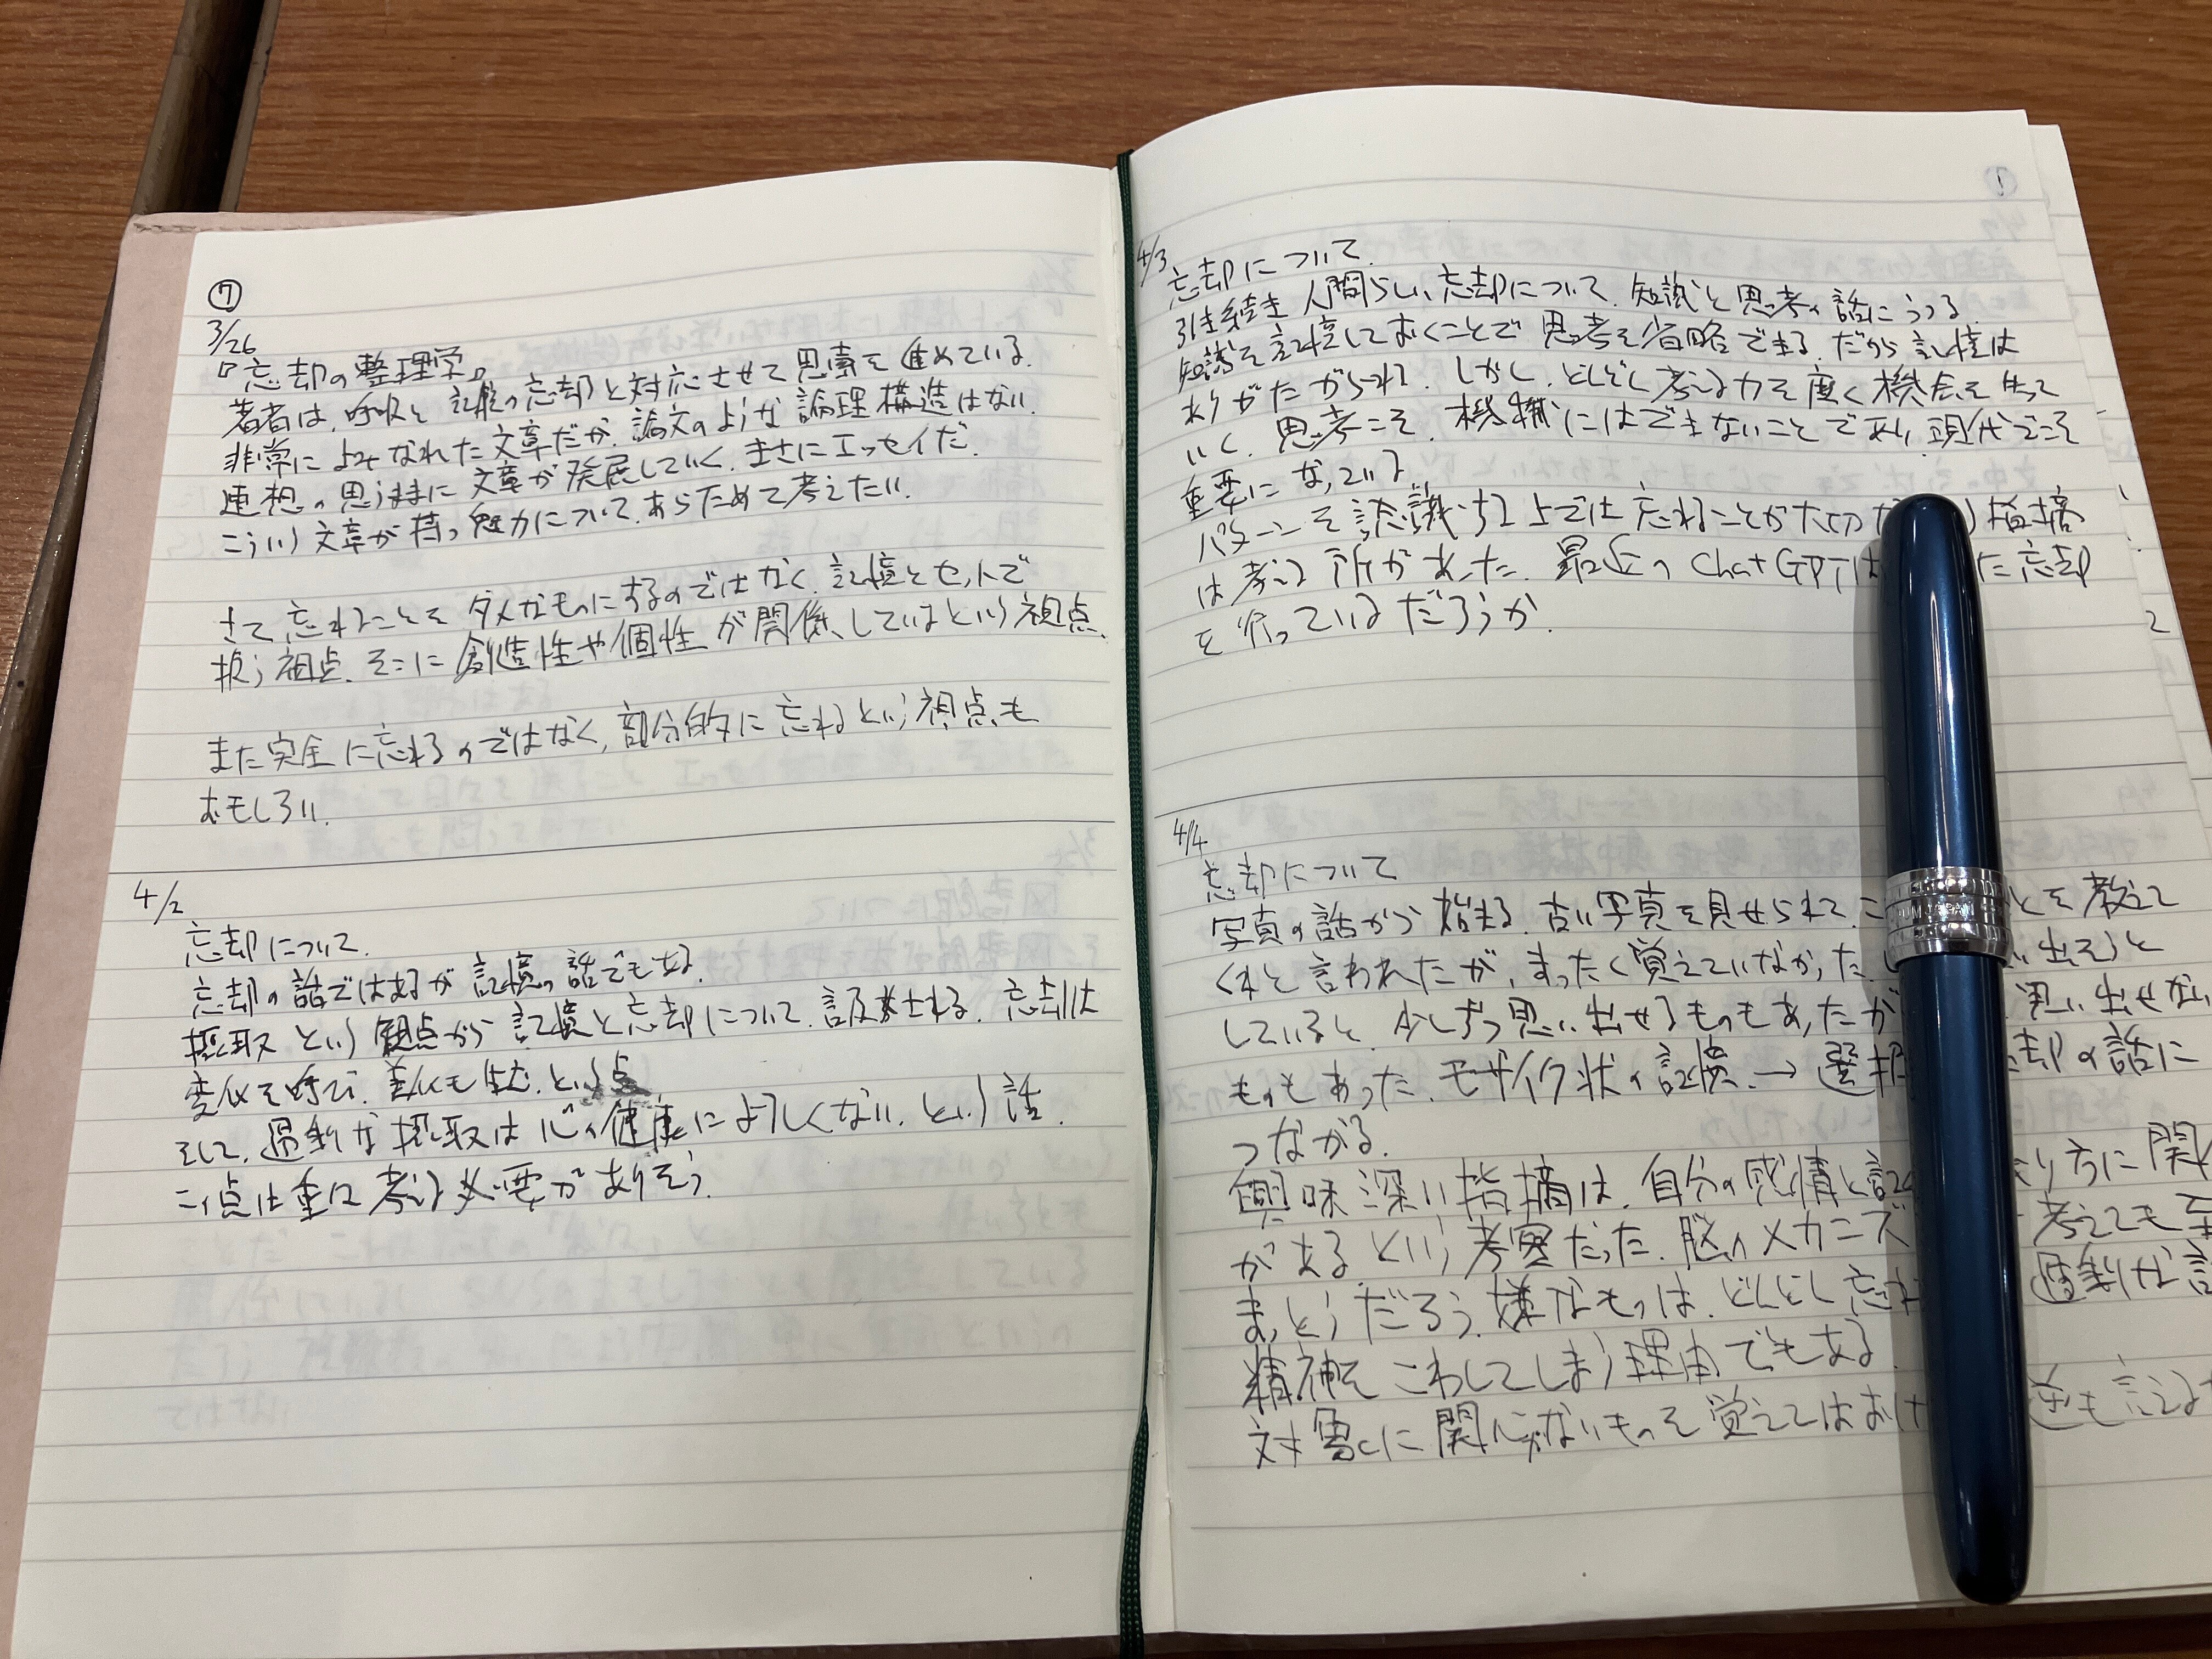 ⑦
3/26
『忘却の整理学』
著者は、呼吸と記憶の忘却と対応させて思索を進めている。
非常によみなれた文章だが、論文のような論理構造はない。
連想の思うままに文章が発展していく。まさにエッセイだ。
こういう文章が持つ魅力について、あらためて考えたい。
さて忘れることをダメなものにするのではなく、記憶とセットで
扱う視点。そこに創造性や個性が関係しているという視点。
また完全に忘れるのではなく、部分的に忘れるという視点も
おもしろい。
4/2
忘却について。
忘却の話ではあるが記憶の話でもある。
摂取という観点から記憶と忘却について言及される。忘却は
変化を呼び、美化も生む、という点
そして、過剰な摂取は心の健康によろしくない、という話。
この点は重ね考える必要がありそう。
4/3
忘却について。
引き続き人間らしい忘却について。知識と思考の話にうつる。
知識を記憶しておくことで思考を省略できる。だから記憶は
ありがたがられる。しかし、どんどん考える力を磨く機会を失って
いく。思考こそ、機械にはできないことであり、現代でこそ
重要になっている
パターンを認識する上では忘れることが大切 指摘
は考える所があった。最近のChatGPTは た忘却
を行っているだろうか。
4/4
忘却について
写真の話から始まる。古い写真を見せられて、こ とを教えて
くれと言われたが、まったく覚えていなかった。 い出そうと
していると、少しずつ思い出せるものもあったが 思い出せない
ものもあった。モザイク状の記憶。→選択 却の話に
つながる。
興味深い指摘は、自分の感情と記 り方に関
があるという考察だった。脳のメカニズ 考えても至
まっとうだろう。嫌なものは、どんどん忘れ 過剰な記
精神をこわしてしまう理由でもある
対象に関心がないものを覚えてはおけ 逆も言える